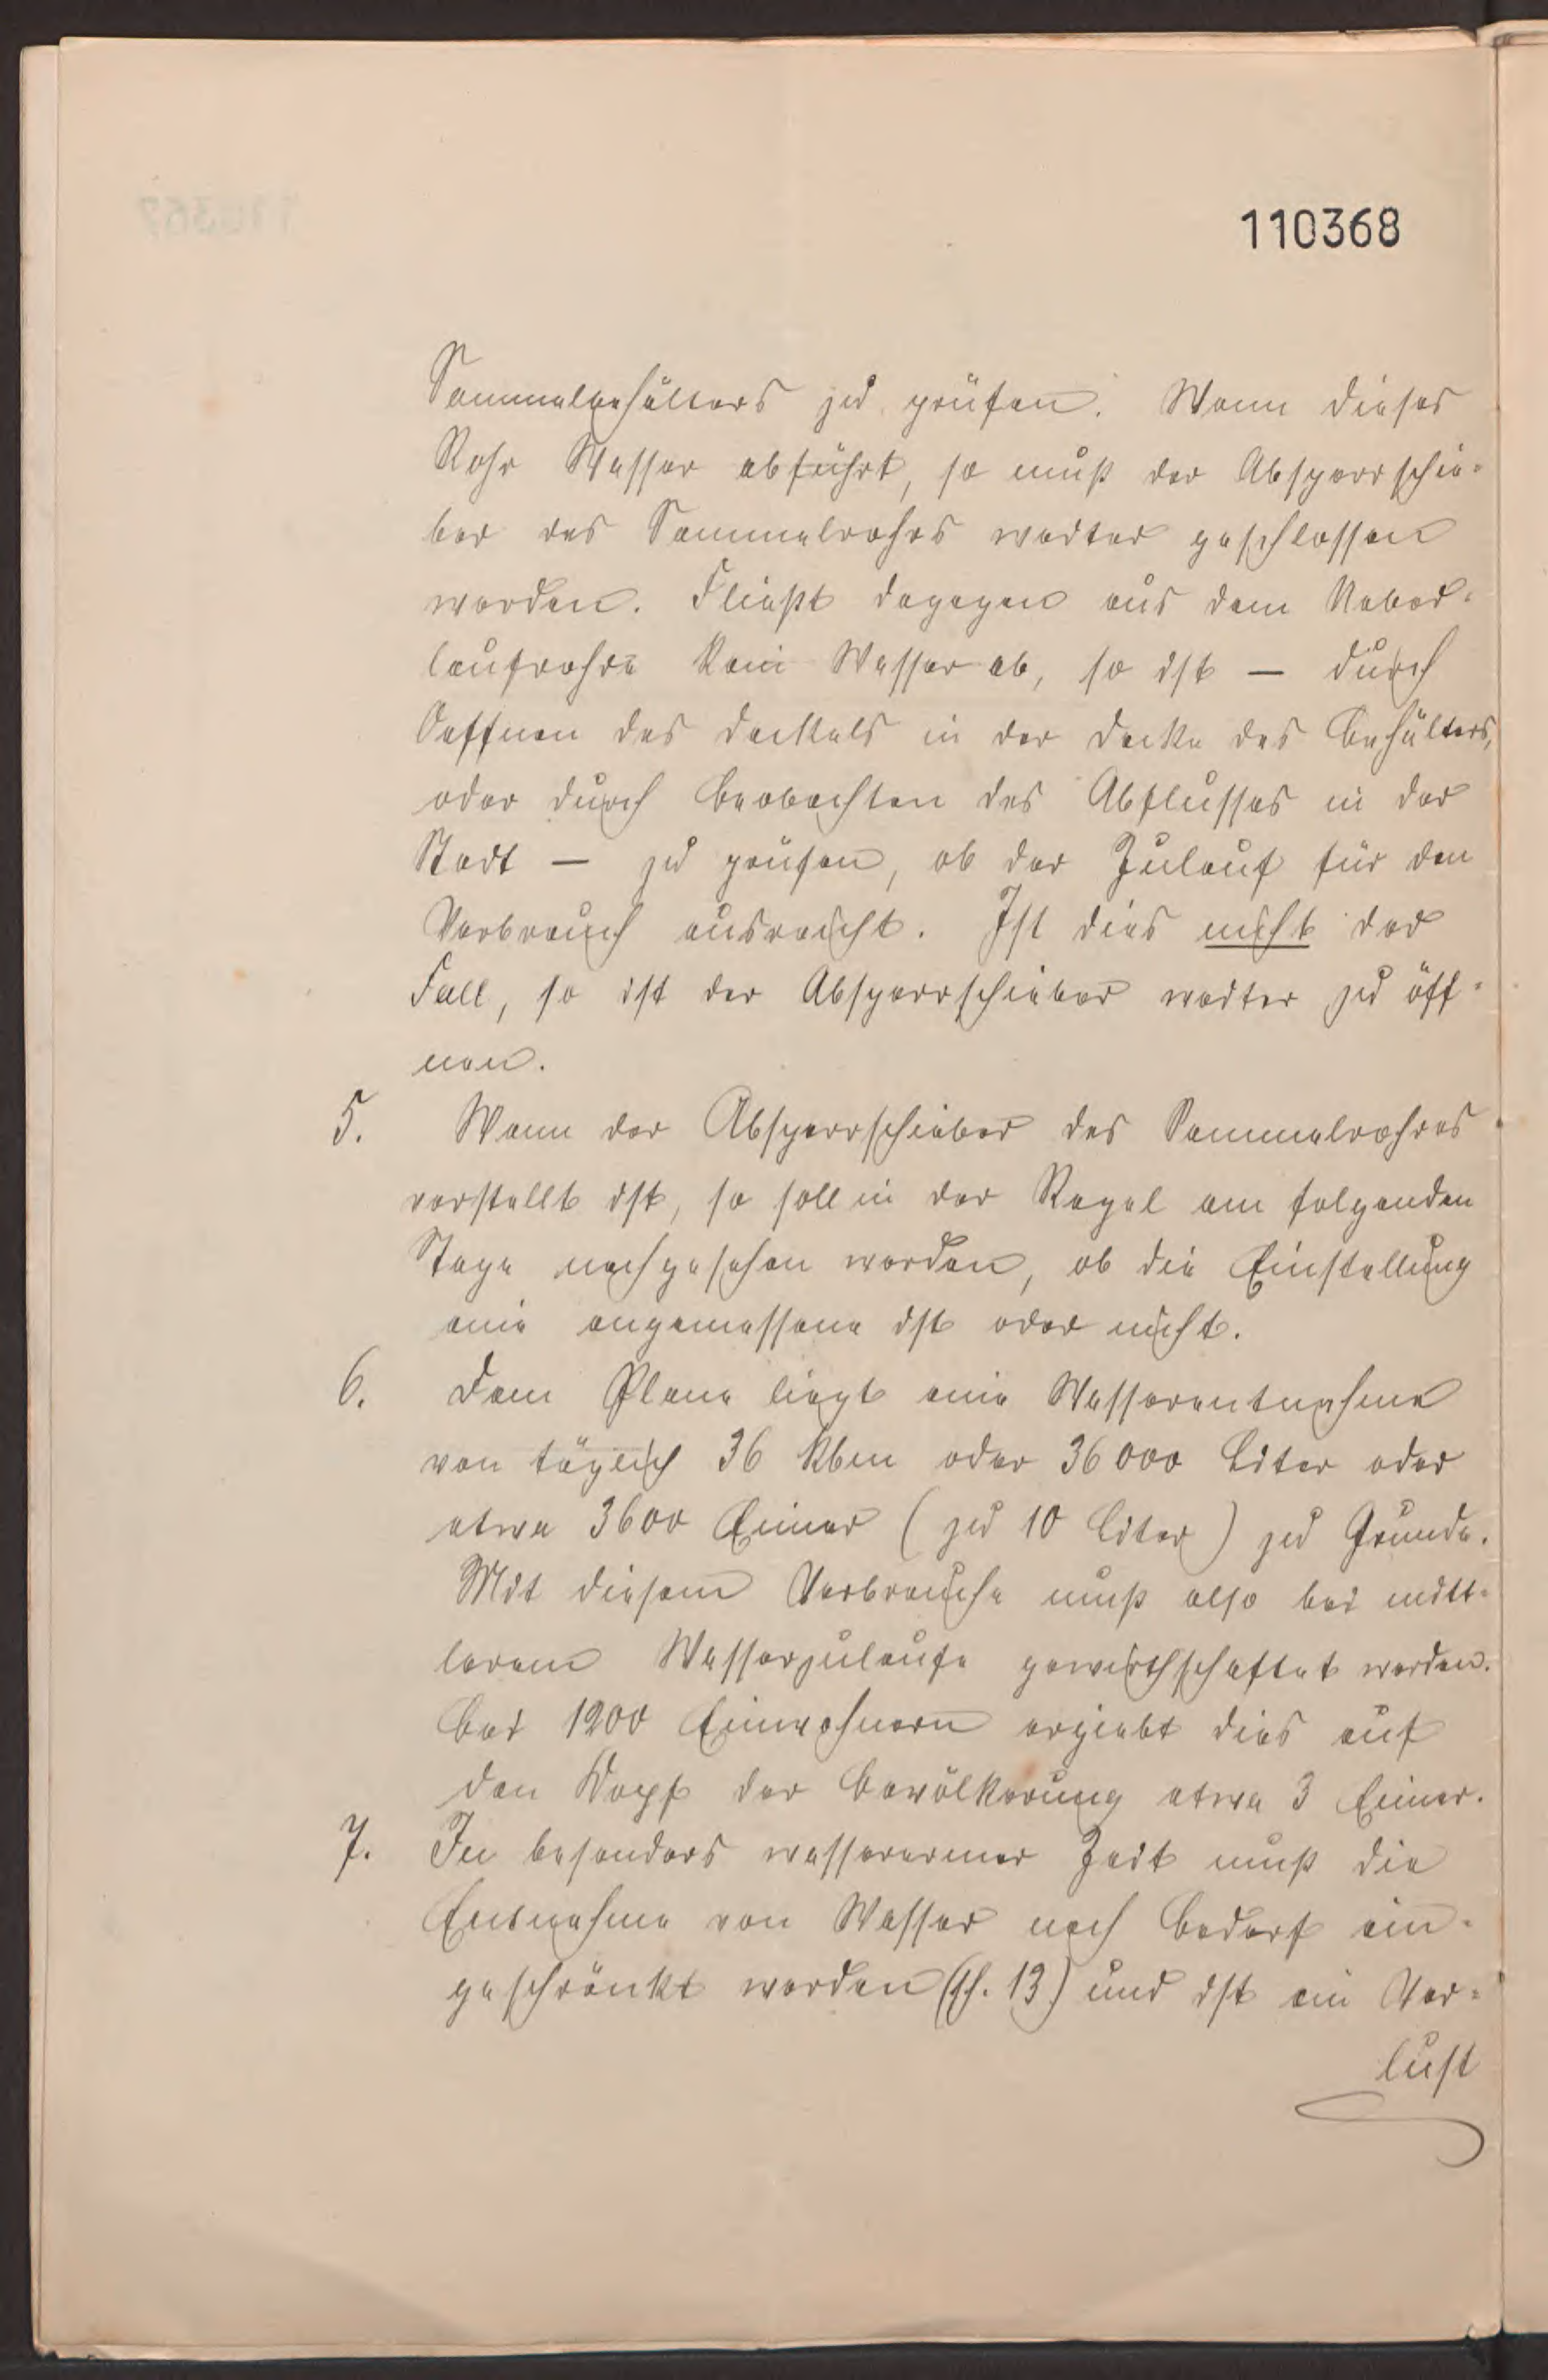 110368
Sammelbehälters zu prüfen. Wenn dieses
Rohr Wasser abführt, so muß der Absperrschie=
ber des Sammelrohrs weiter geschlossen
werden. Fließt dagegen aus dem Ueber=
laufrohre kein Wasser ab, so ist — durch
Oeffnen des Deckels in der Decke des Behälters,
oder durch Beobachten des Abflusses in der
Stadt — zu prüfen, ob der Zulauf für den
Verbrauch ausreicht. Ist dies nicht der
Fall, so ist der Absperrschieber weiter zu öff=
nen.
5. Wenn der Absperrschieber des Sammelrohres
verstellt ist, so soll in der Regel am folgenden
Tage nachgesehen werden, ob die Einstellung
eine angemessene ist oder nicht.
6. Dem Plane liegt eine Wasserentnahme
von täglich 36 kbm oder 36000 Liter oder
etwa 3600 Eimer (zu 10 Liter) zu Grunde.
Mit diesem Verbrauche muß also bei mitt=
lerem Wasserzulaufe gewirthschaftet werden.
Bei 1200 Einwohnern ergiebt dies auf
den Kopf der Bevölkerung etwa 3 Eimer.
7. In besonders wasserarmer Zeit muß die
Entnahme von Wasser nach Bedarf ein=
geschränkt werden (§. 13) und ist ein Ver=
lust